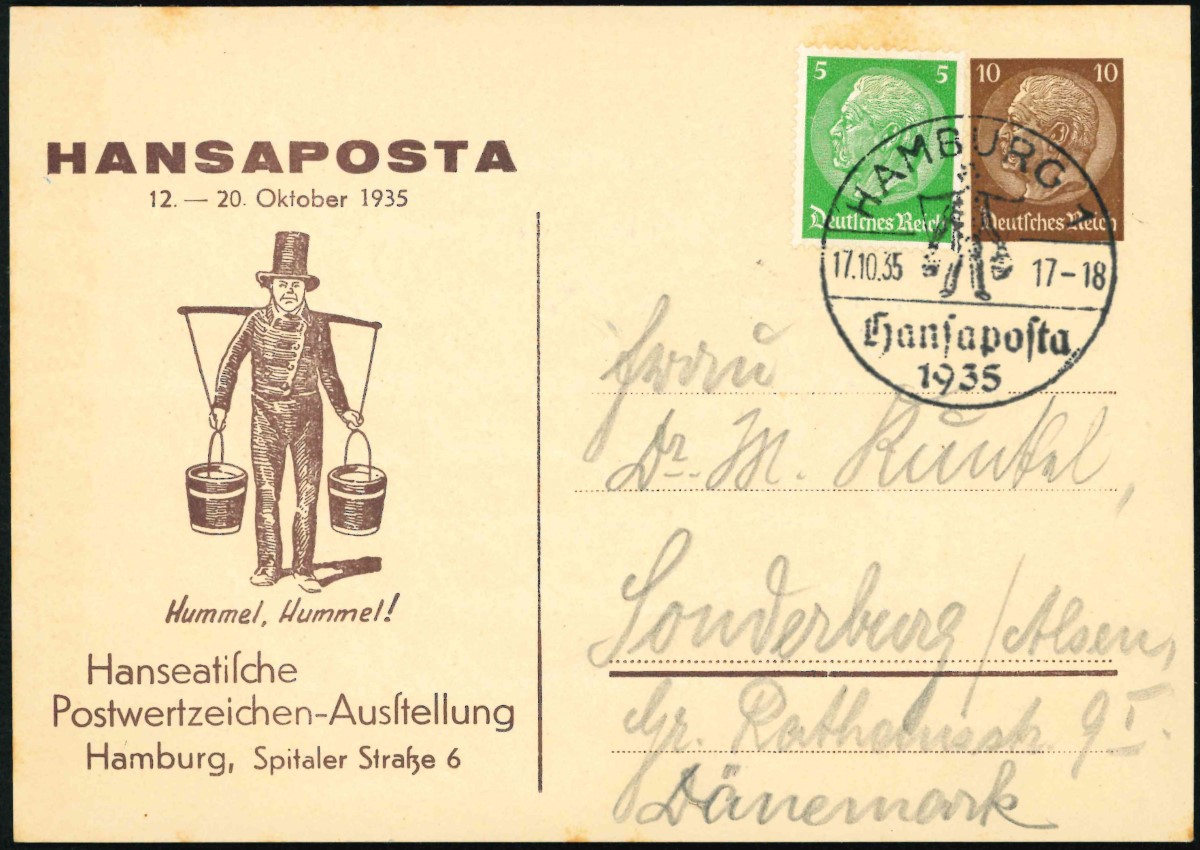 HANSAPOSTA
12. — 20. Oktober 1935
Hummel, Hummel!
Hanseatiſche
Postwertzeichen-Ausſtellung
Hamburg, Spitaler Straße 6
5 5
Deutſches Reich
10 10
Deutſches Reich
HAMBURG 1
17.10.35 17-18
Hanſapoſta
1935
Frau
Dr. M. Kunkel,
Sonderburg / Alsen,
Gr. Rathausstr. 9 I.
Dänemark